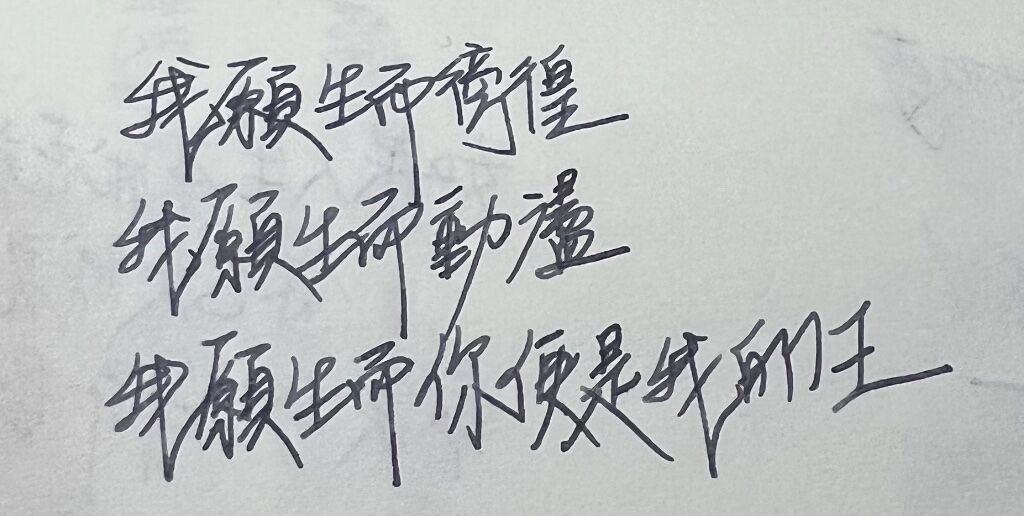 我願生而徬徨
我願生而動盪
我願生而你便是我的王